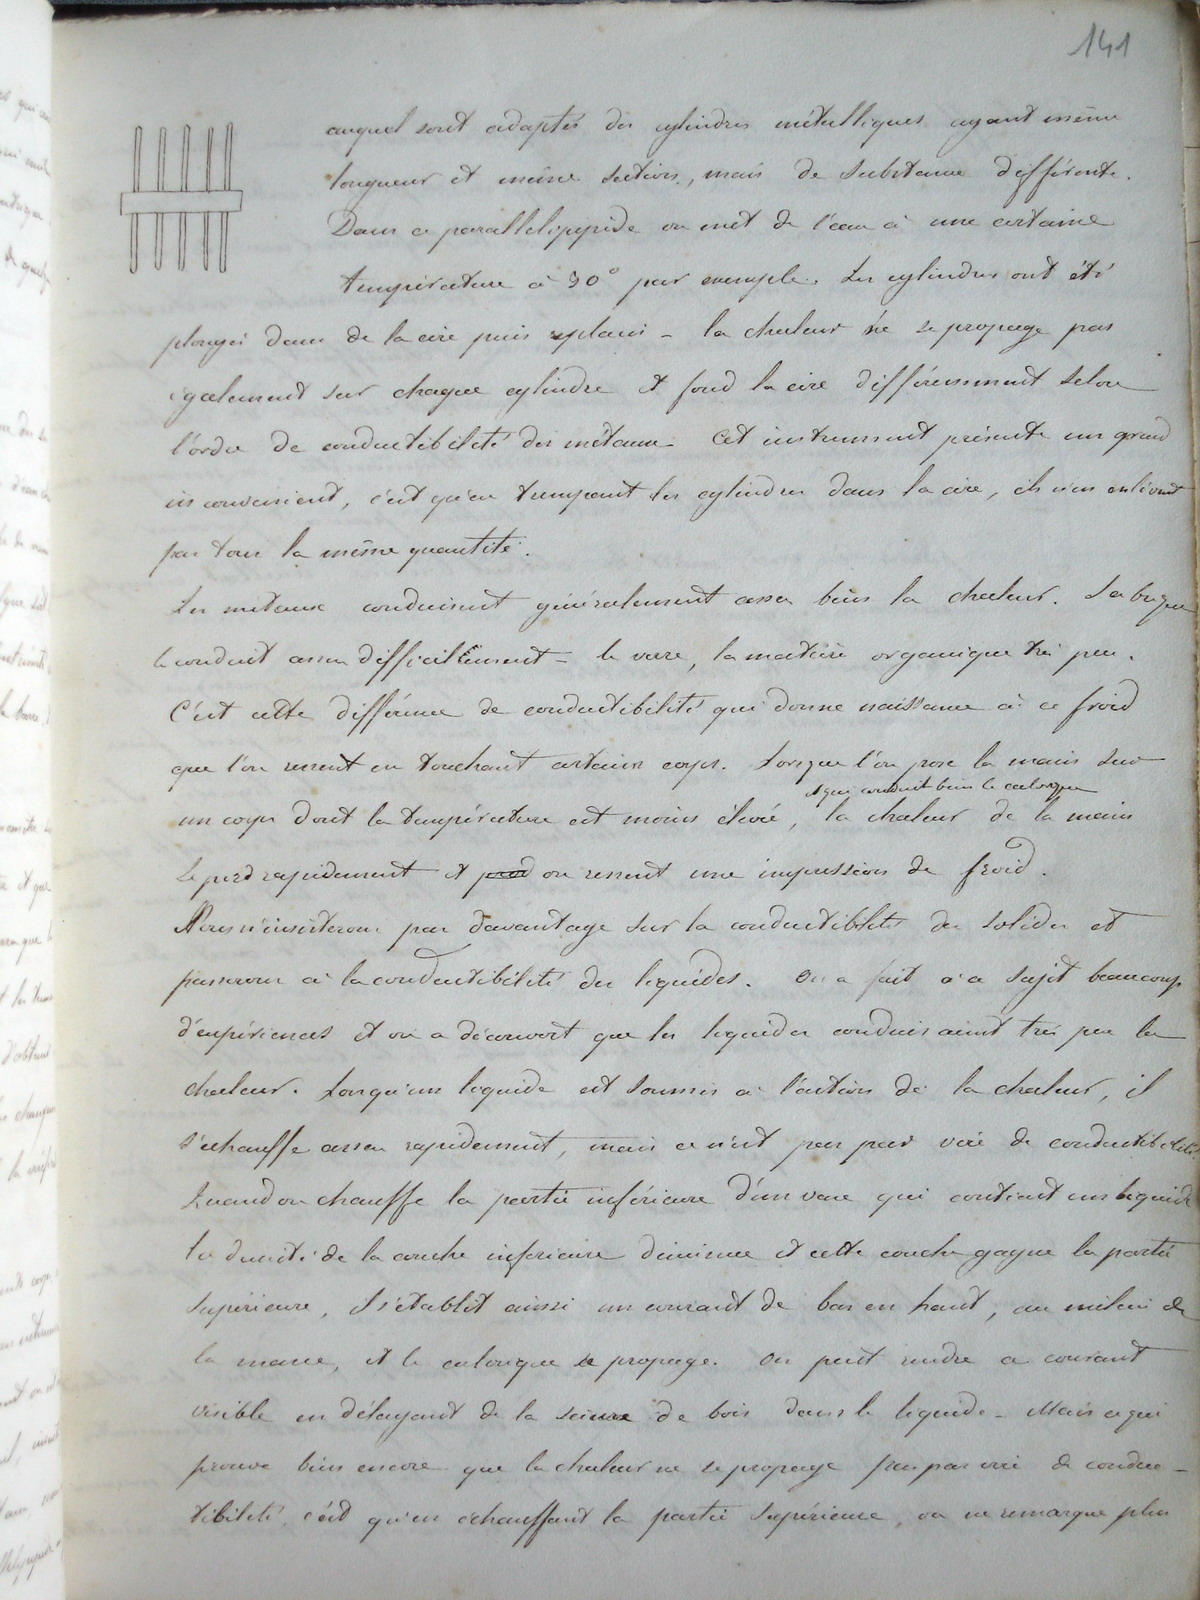 141
auquel sont adaptés des cylindres métalliques ayant même
longueur et même section, mais de substance différente.
Dans ce parallélépipède on met de l'eau à une certaine
température à 90° par exemple. Les cylindres ont été
plongés dans de la cire puis replacés - la chaleur ne se propage pas
également sur chaque cylindre et fond la cire différemment selon
l'ordre de conductibilité des métaux - Cet instrument présente un grand
inconvénient, c'est qu'en trempant les cylindres dans la cire, ils n'en enlèvent
pas tous la même quantité.
Les métaux conduisent généralement assez bien la chaleur. La brique
la conduit assez difficilement - le verre, la matière organique très peu.
C'est cette différence de conductibilité qui donne naissance à ce froid
que l'on ressent en touchant certains corps. Lorsque l'on pose la main sur
et qui conduit bien le calorique
un corps dont la température est moins élevée, la chaleur de la main
se perd rapidement et on ressent une impression de froid.
Nous n'insisterons pas davantage sur la conductibilité des solides et
passerons à la conductibilité des liquides. On a fait à ce sujet beaucoup
d'expériences et on a découvert que les liquides conduisaient très peu la
chaleur. Lorsqu'un liquide est soumis à l'action de la chaleur, il
s'échauffe assez rapidement, mais ce n'est pas par voie de conductibilité.
Quand on chauffe la partie inférieure d'un vase qui contient un liquide
la densité de la couche inférieure diminue et cette couche gagne la partie
supérieure, il s'établit ainsi un courant de bas en haut, au milieu de
la masse, et le calorique se propage. On peut rendre ce courant
visible en délayant de la sciure de bois dans le liquide - Mais ce qui
prouve bien encore que la chaleur ne se propage pas par voie de conduc-
tibilité, c'est qu'en échauffant la partie supérieure, on ne remarque plus